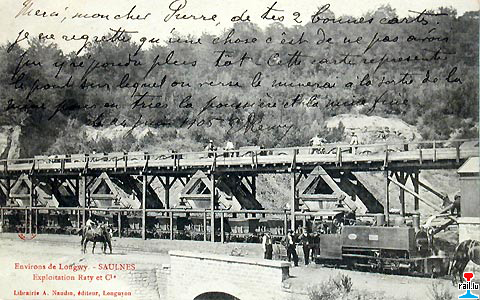 Merci, mon cher Pierre, de tes 2 bonnes cartes
je ne regrette qu'une chose c'est de ne pas avoir
pu y répondre plus tôt. Cette carte représente
le pont sur lequel on verse le minerai à la sortie de la
mine pour en trier la poussière et la mine fine
1905
Henry
Environs de Longwy. - SAULNES
Exploitation Raty et Cie
Librairie A. Naudin, éditeur, Longuyon
rail.lu